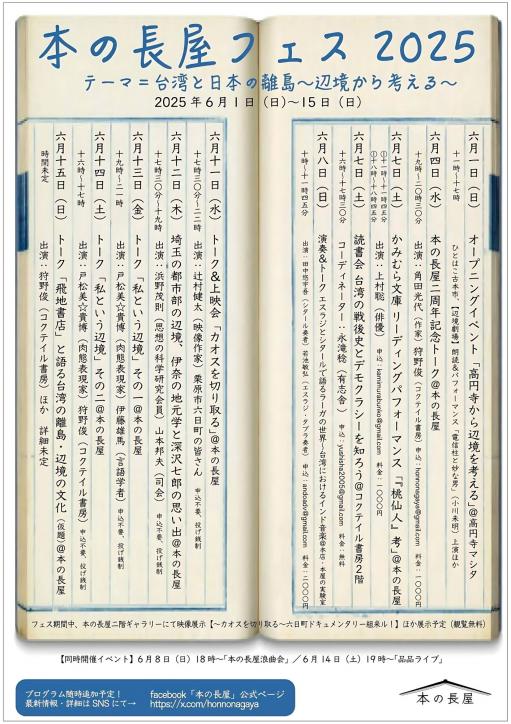 本の長屋フェス 2025
テーマ=台湾と日本の離島～辺境から考える～
2025年6月1日（日）～15日（日）
六月一日（日）　オープニングイベント「高円寺から辺境を考える」＠高円寺マシタ
十一時～十七時　ひとはこ古本市、【辺境劇場】朗読＆パフォーマンス「電信柱と妙な男」（小川未明）上演ほか
六月四日（水）　本の長屋二周年記念トーク＠本の長屋
十九時～二〇時三〇分　出演：角田光代（作家）狩野俊（コクテイル書房）申込：honnonagaya@gmail.com　料金：一〇〇〇円
六月七日（土）　かみむら文庫 リーディングパフォーマンス「『桃仙人』考」＠本の長屋
①十一時～十一時四五分
②十八時～十八時四五分　出演：上村聡（俳優）　申込：kamimurabunko@gmail.com　料金：一〇〇〇円
六月七日（土）　読書会 台湾の戦後史とデモクラシーを知ろう＠コクテイル書房2階
十六時～十七時三〇分　コーディネーター：永滝稔（有志舎）　申込：yushisha2005@gmail.com　料金：無料
六月八日（日）　演奏＆トーク エスラジとシタールで語るラーガの世界～台湾におけるインド音楽＠本店・本屋の実験室
十時～十一時四五分　出演：田中悠宇吾（シタール奏者）若池敏弘（エスラジ・タブラ奏者）　申込：andoadv@gmail.com　料金：二〇〇〇円
六月十一日（水）　トーク＆上映会「カオスを切り取る」＠本の長屋
十七時三〇分～二二時　出演：辻村健太（映像作家）栗原市六日町の皆さん　申込不要、投げ銭制
六月十二日（木）　埼玉の都市部の辺境、伊奈の地元学と深沢七郎の思い出＠本の長屋
十七時三〇分～十九時　出演：浜野茂則（思想の科学研究会員）山本邦夫（司会）　申込不要、投げ銭制
六月十三日（金）　トーク「私という辺境」その一＠本の長屋
十九時～二一時　出演：戸松美☆貴博（肉態表現家）伊藤雄馬（言語学者）　申込不要、投げ銭制
六月十四日（土）　トーク「私という辺境」その二＠本の長屋
十六時～十七時　出演：戸松美☆貴博（肉態表現家）狩野俊（コクテイル書房）　申込不要、投げ銭制
六月十五日（日）　トーク「飛地書店」と語る台湾の離島・辺境の文化（仮題）＠本の長屋
時間未定　出演：狩野俊（コクテイル書房）ほか　詳細未定
フェス期間中、本の長屋二階ギャラリーにて映像展示【～カオスを切り取る～六日町ドキュメンタリー組来ル！】ほか展示予定（観覧無料）
【同時開催イベント】6月8日（日）18時～「本の長屋浪曲会」／6月14日（土）19時～「品品ライブ」
プログラム随時追加予定！
最新情報・詳細はSNSにて→
facebook「本の長屋」公式ページ
https://x.com/honnonagaya
本の長屋